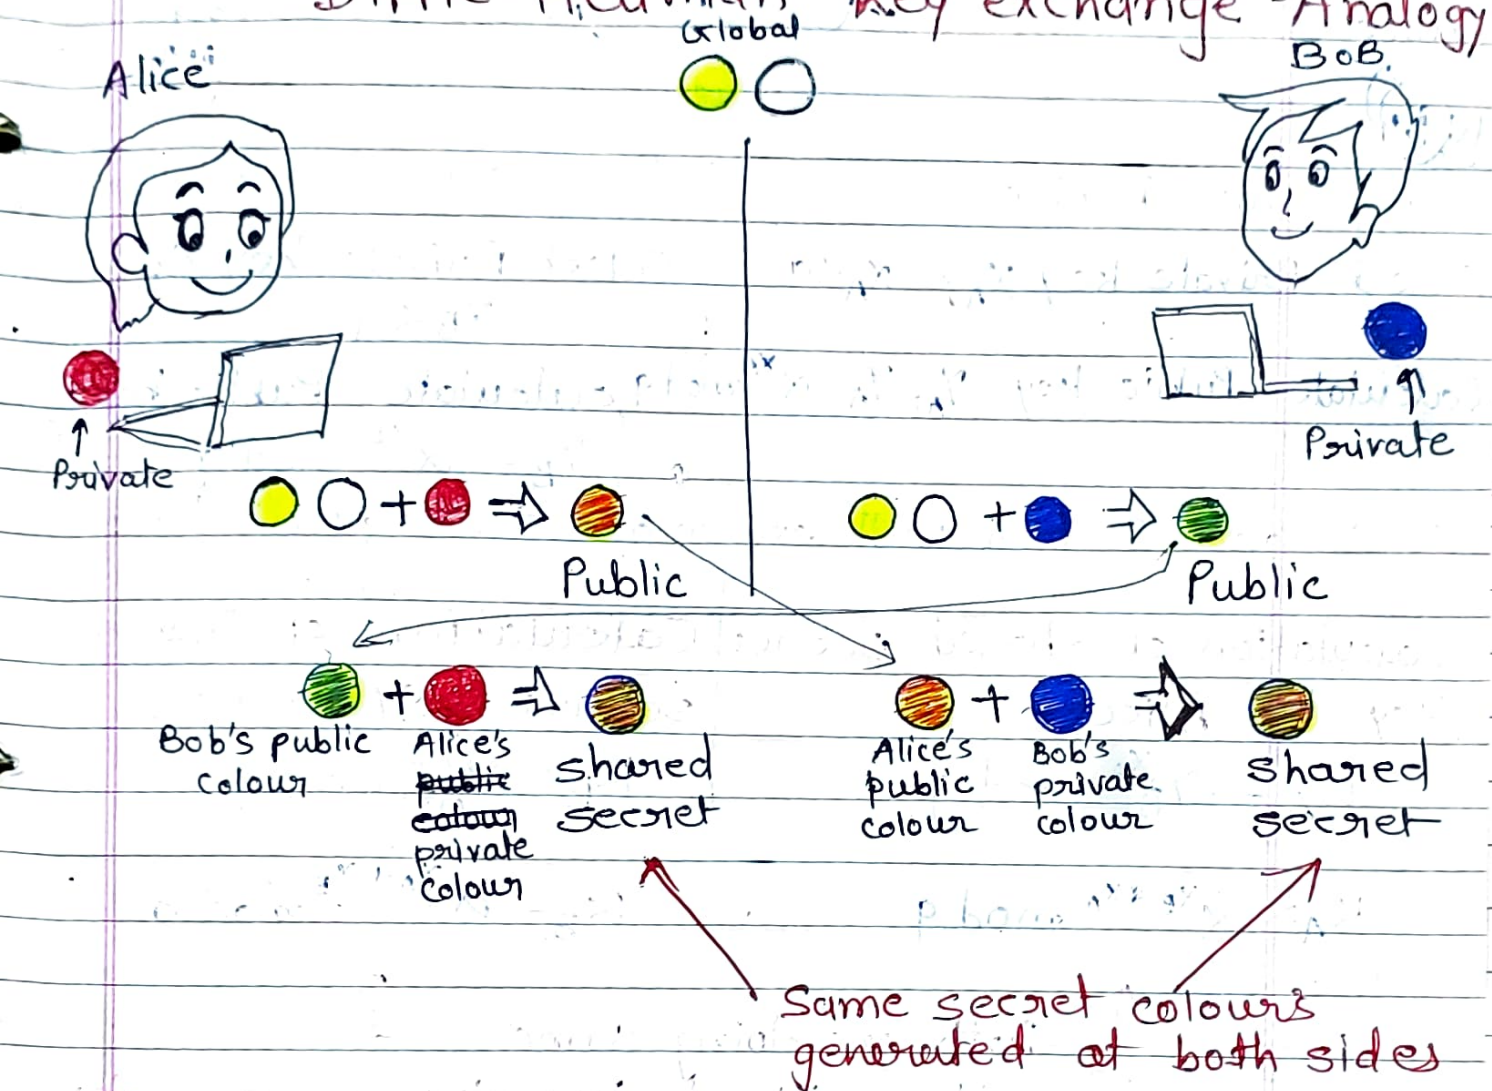 Key exchange Analogy
Global
Alice
BoB.
Private
Private
+ ⇒
+ ⇒
Public
Public
+ ⇒
+ ⇒
Bob's public
colour
Alice's
public
colour
private
colour
shared
secret
Alice's
public
colour
Bob's
private
colour
shared
secret
Same secret colours
generated at both sides